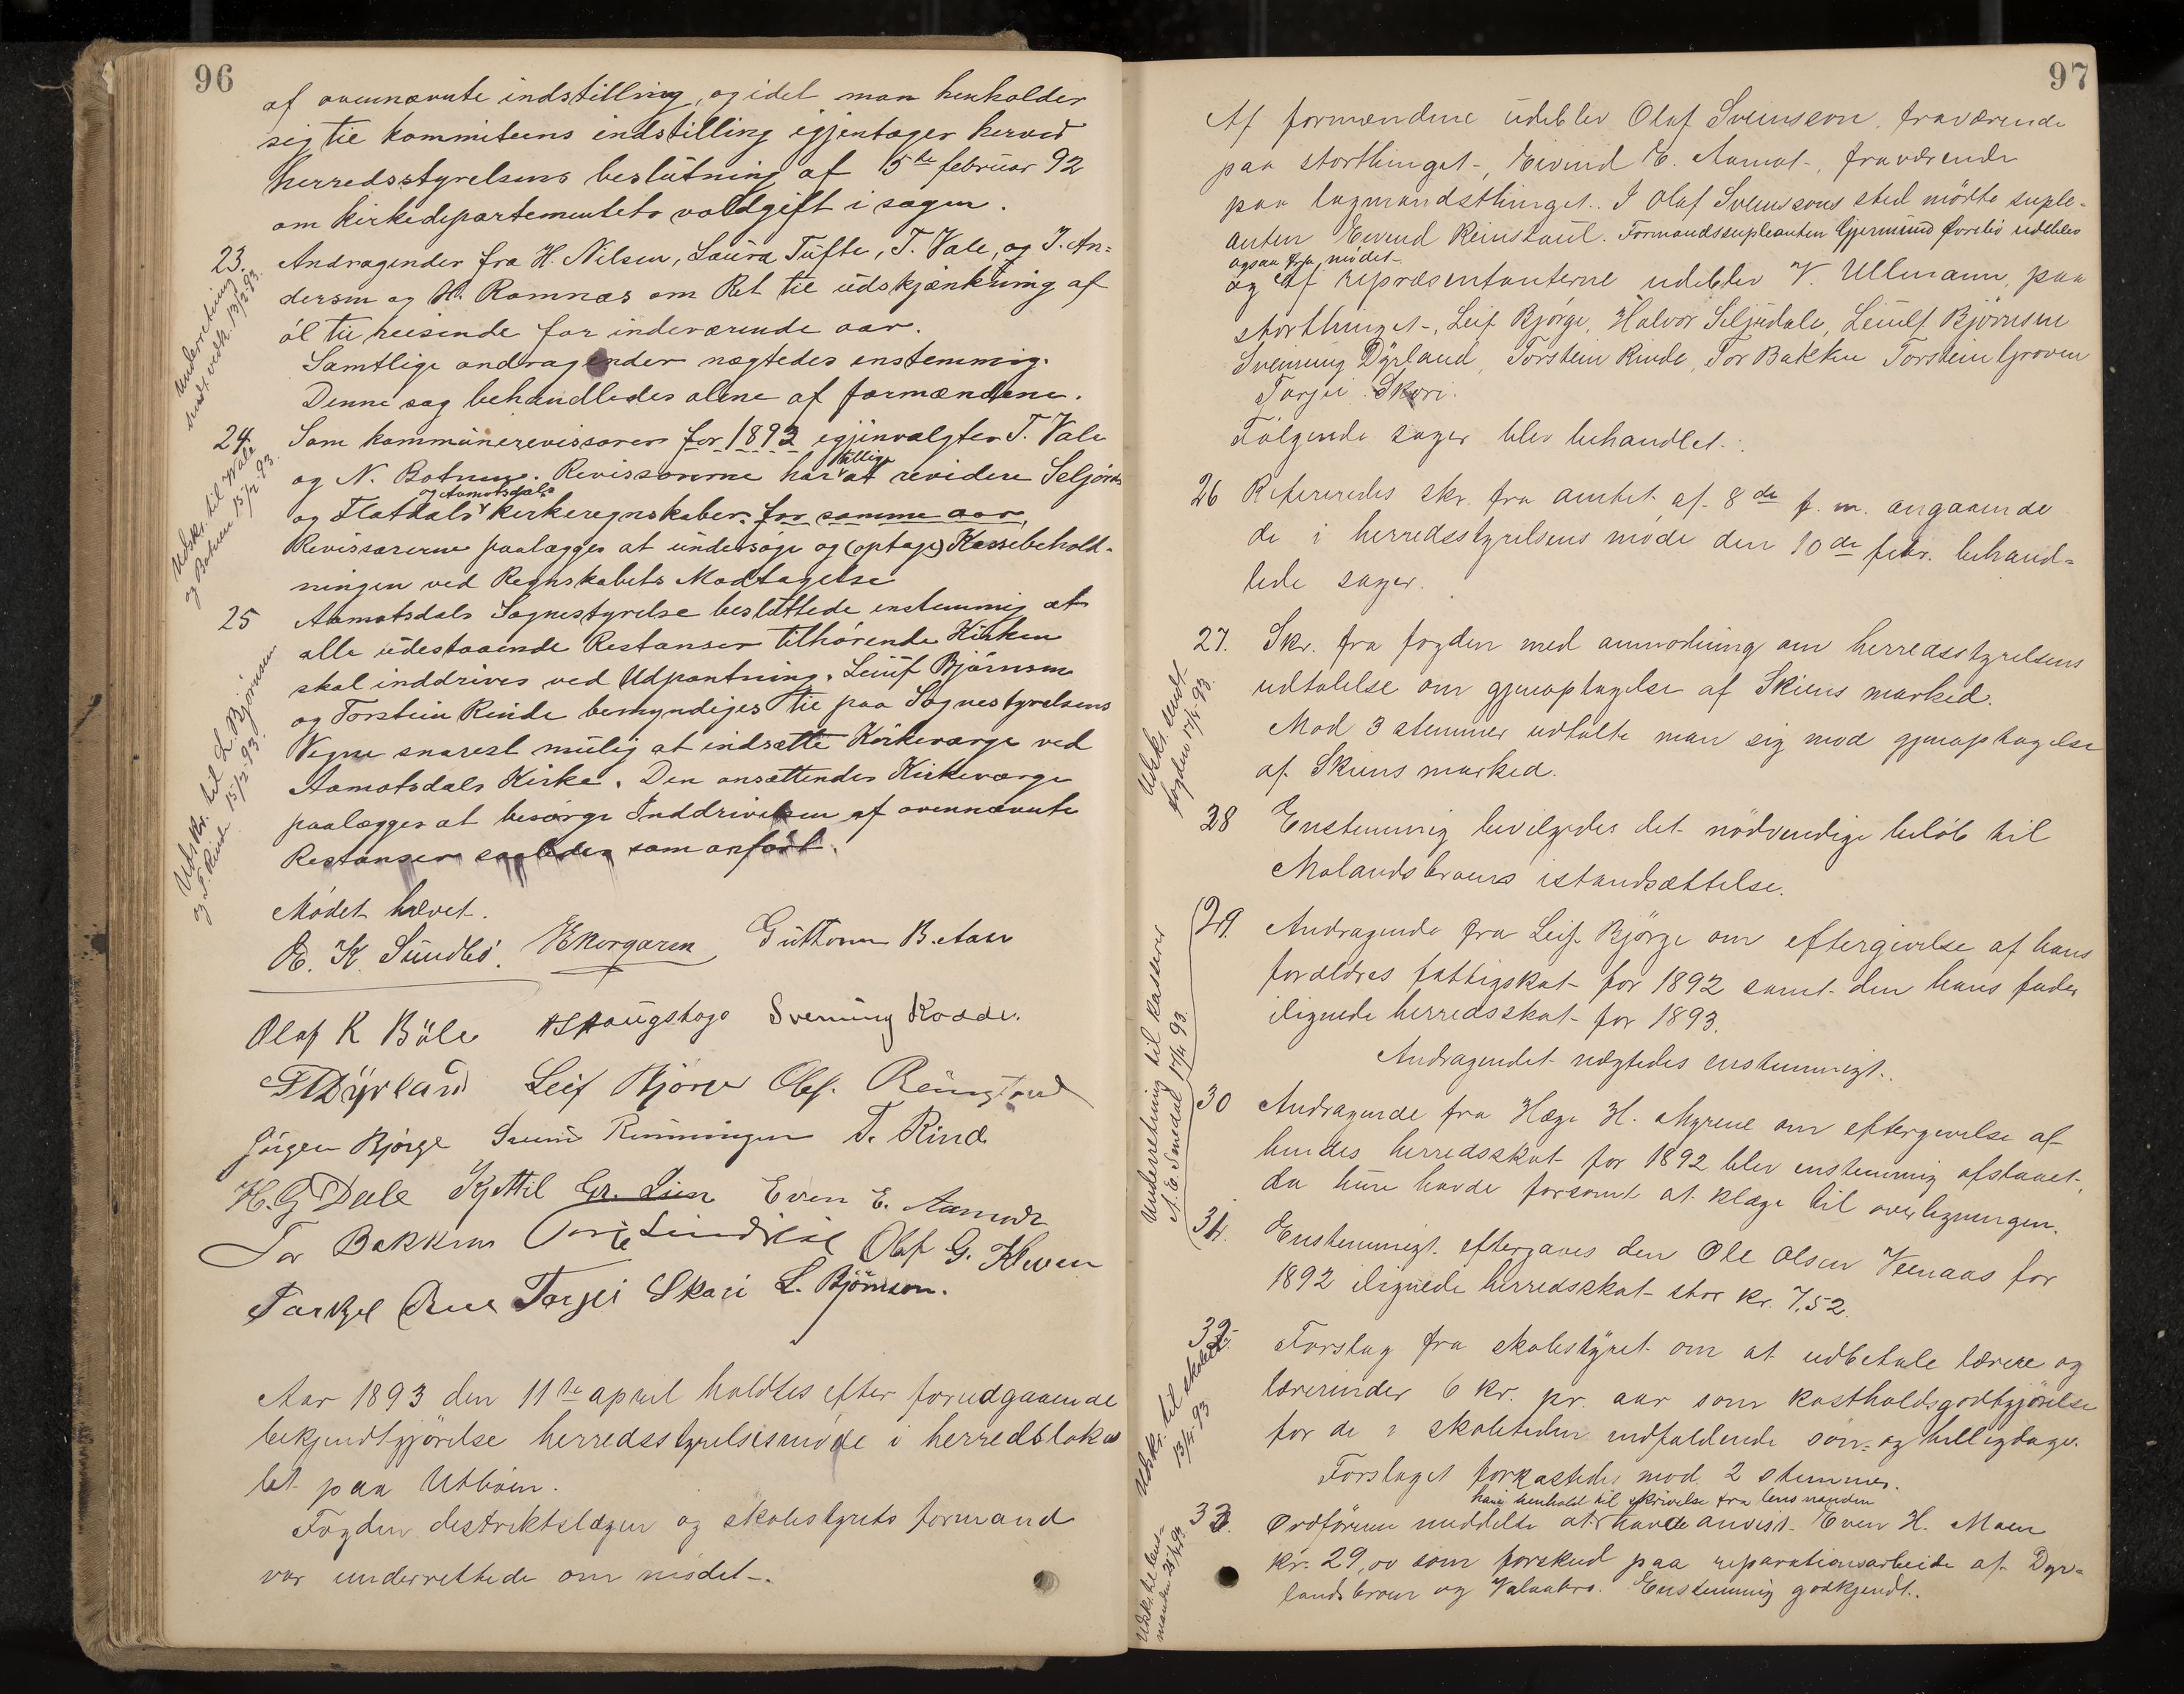 96
af ovennævnte indstilling, og idet man henholder
sig til kommiteens indstilling igjentager herved
herredsstyrelsens beslutning af 5te februar 92
om kirkedepartementets voldgift i sagen.
23. Andragender fra H. Nilsen, Laura Tufte, T. Vale, og J. An=
dersen og H. Romnæs om Ret til udskjænkning af
öl til reisende for indeværende aar.
Underretning
sendt vedk. 13/2 93.
Samtlige andragender nægtedes enstemmig.
Denne sag behandledes alene af formændene.
24. Som kommunerevissorer for 1893 igjenvalgtes T. Vale
og N. Botnen. Revissorerne har tillige at revidere Seljords
og Flatdals og Aamotsdals kirkeregnskaber for samme aar.
Revissorerne paalægges at undersöge og (optage) Kassebehold-
ningen ved Regnskabets Modtagelse
Udskr. til Vale
og Botnen 15/2 93.
25 Aamotsdals Sognestyrelse besluttede enstemmig at
alle udestaaende Restanser tilhörende Kirken
skal inddrives ved Udpantning. Leiuf Björnsen
og Torstein Rinde bemyndiges til paa Sognestyrelsens
Vegne snarest mulig at indsætte Kirkeværge ved
Aamotsdals Kirke. Den ansættendes Kirkeværge
paalægges at besörge Inddrivelsen af ovennævnte
Restanser saaledes som anfört.
Udskr. til L. Björnsen
og T. Rinde 15/2 93.
Mödet hævet.
O. K. Sundbö. Guttorm B. Aase
Olaf K Böle Svenung Kosse.
Leif Björge Olaf.
Jörgen Björge Svein Rinningen T. Rinde
H. G Dale Kjettil Gr. Lien Even E. Aamodt
Tor Bakken Olaf G. Kleven
Torgei Skori L. Björnson.
Aar 1893 den 11te april holdtes efter forudgaaende
bekjendtgjörelse herredsstyrelsesmöde i herredsloka
let paa Utböen.
Fogden, distriktslægen og skolestyrets formand
var underrettede om mödet.
97
Af formændene udeblev Olaf Sveinsson, fraværende
paa storthinget, Eivind E. Aamot, fraværende
paa lagmandsthinget. I Olaf Sveinssons sted mötte suple-
anten Eivend Reinstaul. Formandssupleanten Gjermund Forebö udeblev
ogsaa fra mödet
og af repræsentanterne udeblev V. Ullmann, paa
storthinget, Leif Björge, Halvor Seljudale, Leiulf Björnsen
Svenung Dyrland, Torstein Rinde, Tor Bakken Torstein Groven
Torjei Skori.
Fölgende sager blev behandlet:
26 Refereredes skr. fra amtet af 8de f. m. angaaende
de i herredsstyrelsens möde den 10de febr. behand=
lede sager.
27. Skr. fra fogden med anmodning om herredsstyrelsens
udtalelse om gjenoptagelse af Skiens marked.
Mod 3 stemmer udtalte man sig mod gjenoptagelse
af Skiens marked.
Udskr. sendt
fogden 13/4 93.
28 Enstemmig bevilgedes det nödvendige belöb til
Molandsbroens istandsættelse.
29. Andragende fra Leif Björge om eftergivelse af hans
forældres fattigskat for 1892 samt den hans fader
ilignede herredsskat for 1893.
Andragendet nægtedes enstemmigt.
Underretning til kasserer
A. E. Smedal 17/4 93.
30 Andragende fra Hæge H. Myrene om eftergivelse af
hendes herredsskat for 1892 blev enstemmig afslaaet,
da hun havde forsömt at klage til overligningen.
31. Enstemmigt eftergaves den Ole Olsen Veenaas for
1892 ilignede herredsskat stor kr. 7,52.
32. Forslag fra skolestyret om at udbetale lærere og
lærerinder 6 kr. pr. aar som kostholdsgodtgjörelse
for de i skoletiden indfaldende sön- og helligdage.
Forslaget forkastedes mod 2 stemmer.
Udskr. til skolest.
13/4 93
33. Ordföreren meddelte at han i henhold til skrivelse fra lensmanden havde anvist Even H. Moen
kr. 29,00 som forskud paa reparationsarbeide af Dyr=
landsbroen og Valaabro. Enstemmig godkjendt.
Udskr. til lens-
manden 25/4 93